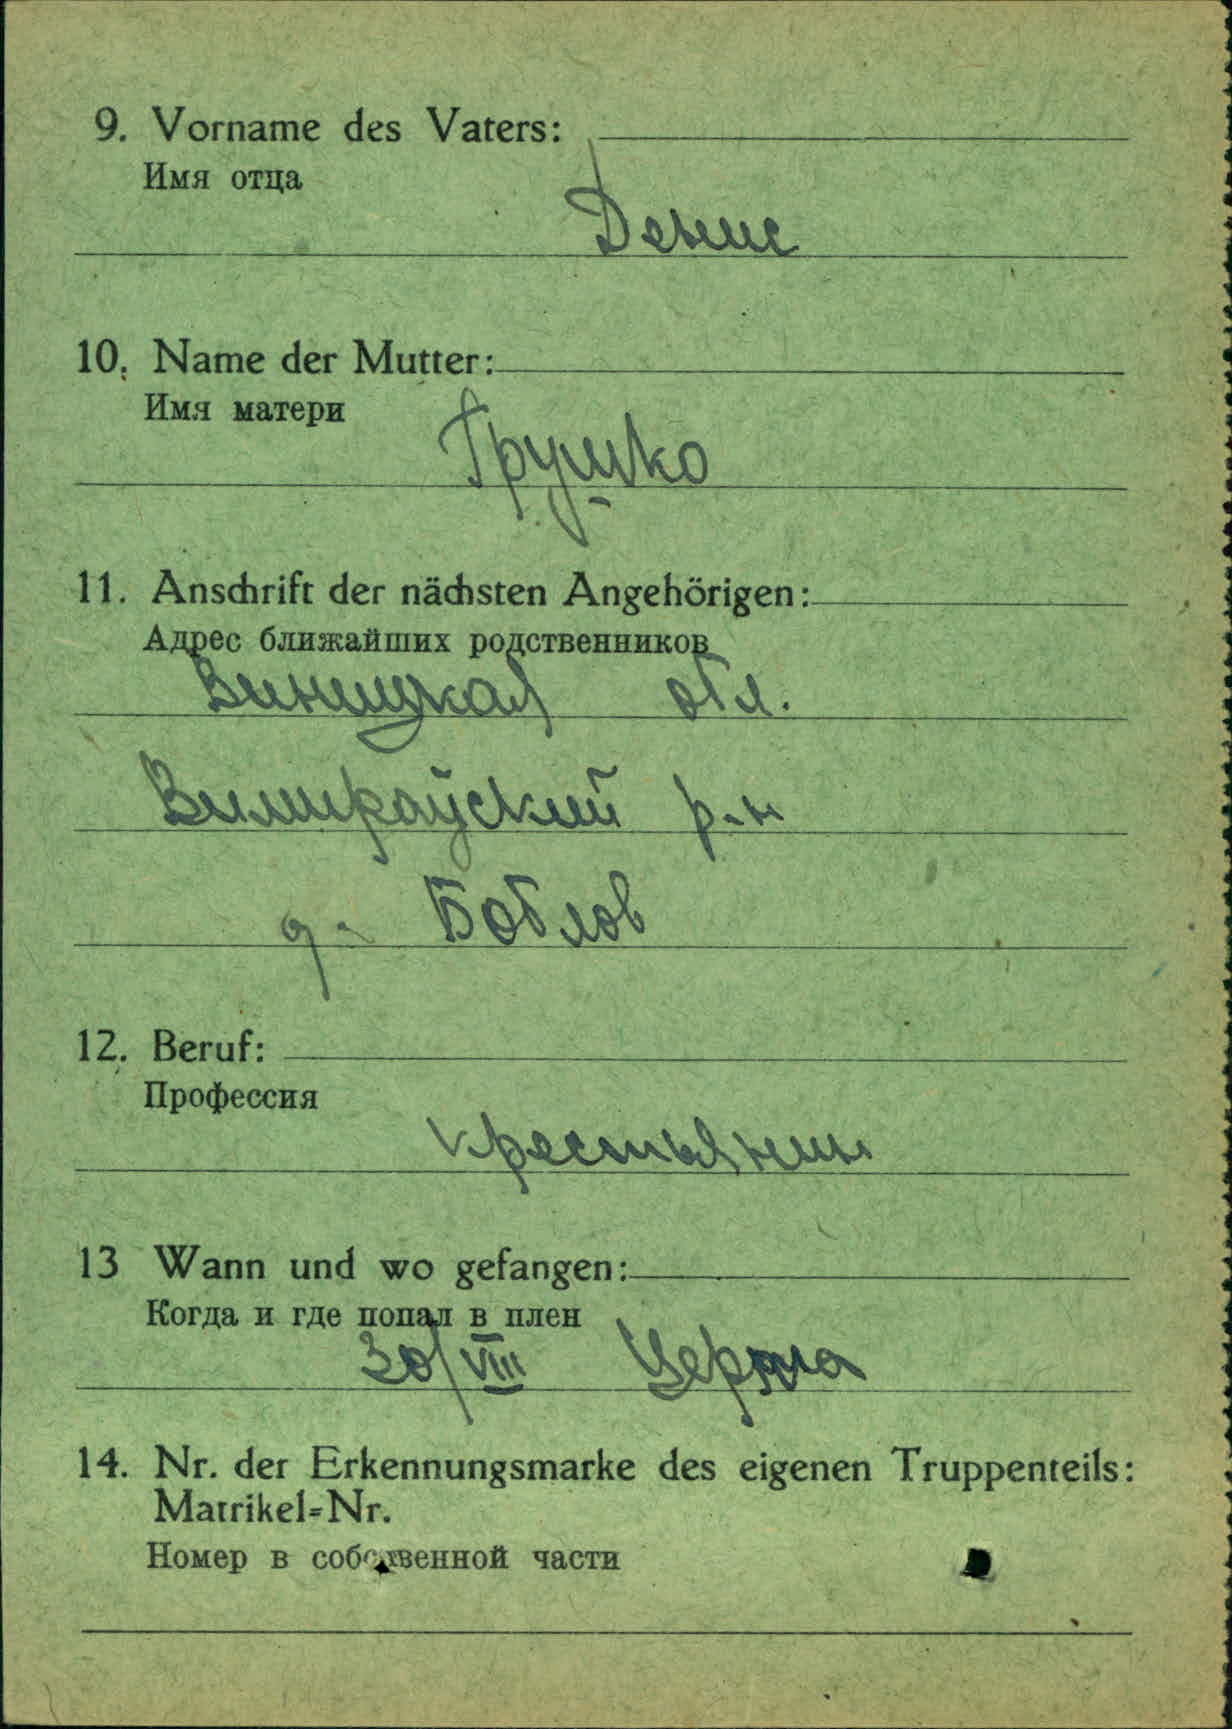 9. Vorname des Vaters:
Имя отца
Денис
10. Name der Mutter:
Имя матери
Грушко
11. Anschrift der nächsten Angehörigen:
Адрес ближайших родственников
Виницкая обл.
р-н
д. Боблов
12. Beruf:
Профессия
крестьянин
13 Wann und wo gefangen:
Когда и где попал в плен
30/VIII
14. Nr. der Erkennungsmarke des eigenen Truppenteils:
Matrikel-Nr.
Номер в собственной части